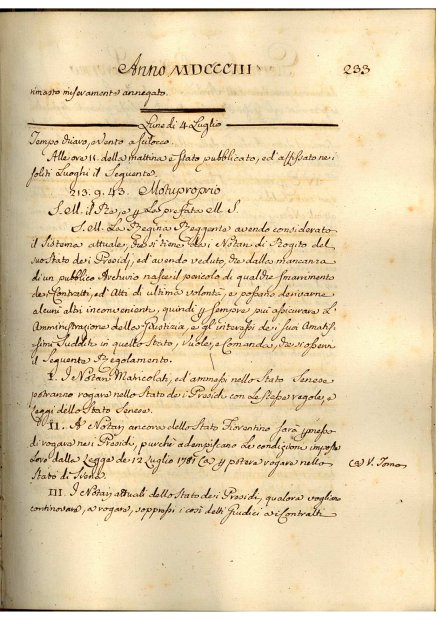 Anno MDCCCIII 233
rimasto miseramente annegato.
Lunedì 4 Luglio
Tempo chiaro, e Vento a Scilocco.
Alle ore 11. della mattina è stato pubblicato, ed affissato nei
soliti Luoghi il Seguente.
213. 9. 43. Motuproprio
S. M. il Re, e p La prefata M. S.
S. M. La Regina Reggente avendo considerato
il Sistema attuale, che si tiene da i Notari di Rogito del
suo Stato dei Presidj, ed avendo veduto, che dalla mancanza
di un pubblico Archivio nasce il pericolo di qualche smarrimento
de Contratti, ed Atti di ultima volontà, e possano derivarne
alcuni altri inconvenienti, quindi p sempre più assicurare L'
Amministrazione della Giustizia, e gl'interessi de i suoi Amatis-
simi Sudditi in quello Stato, vuole, e Comanda, che si osservi
il Seguente Regolamento.
I. I Notari Matricolati, ed ammessi nello Stato Senese
potranno rogare nello Stato dei Presidj con Le stesse regole, e
Leggi dello Stato Senese.
II. A' Notarj ancora dello Stato Fiorentino sarà pmesso
di rogare nei Presidj, purchè adempiscano Le condizioni imposte
Loro dalla Legge de' 12 Luglio 1781 (a p potere rogare nello
(a V. Tomo
Stato di Siena.
III. I Notarj attuali dello Stato dei Presidj, qualora vogliano
continovare, a rogare, soppressi i così detti Giudici a i Contratti